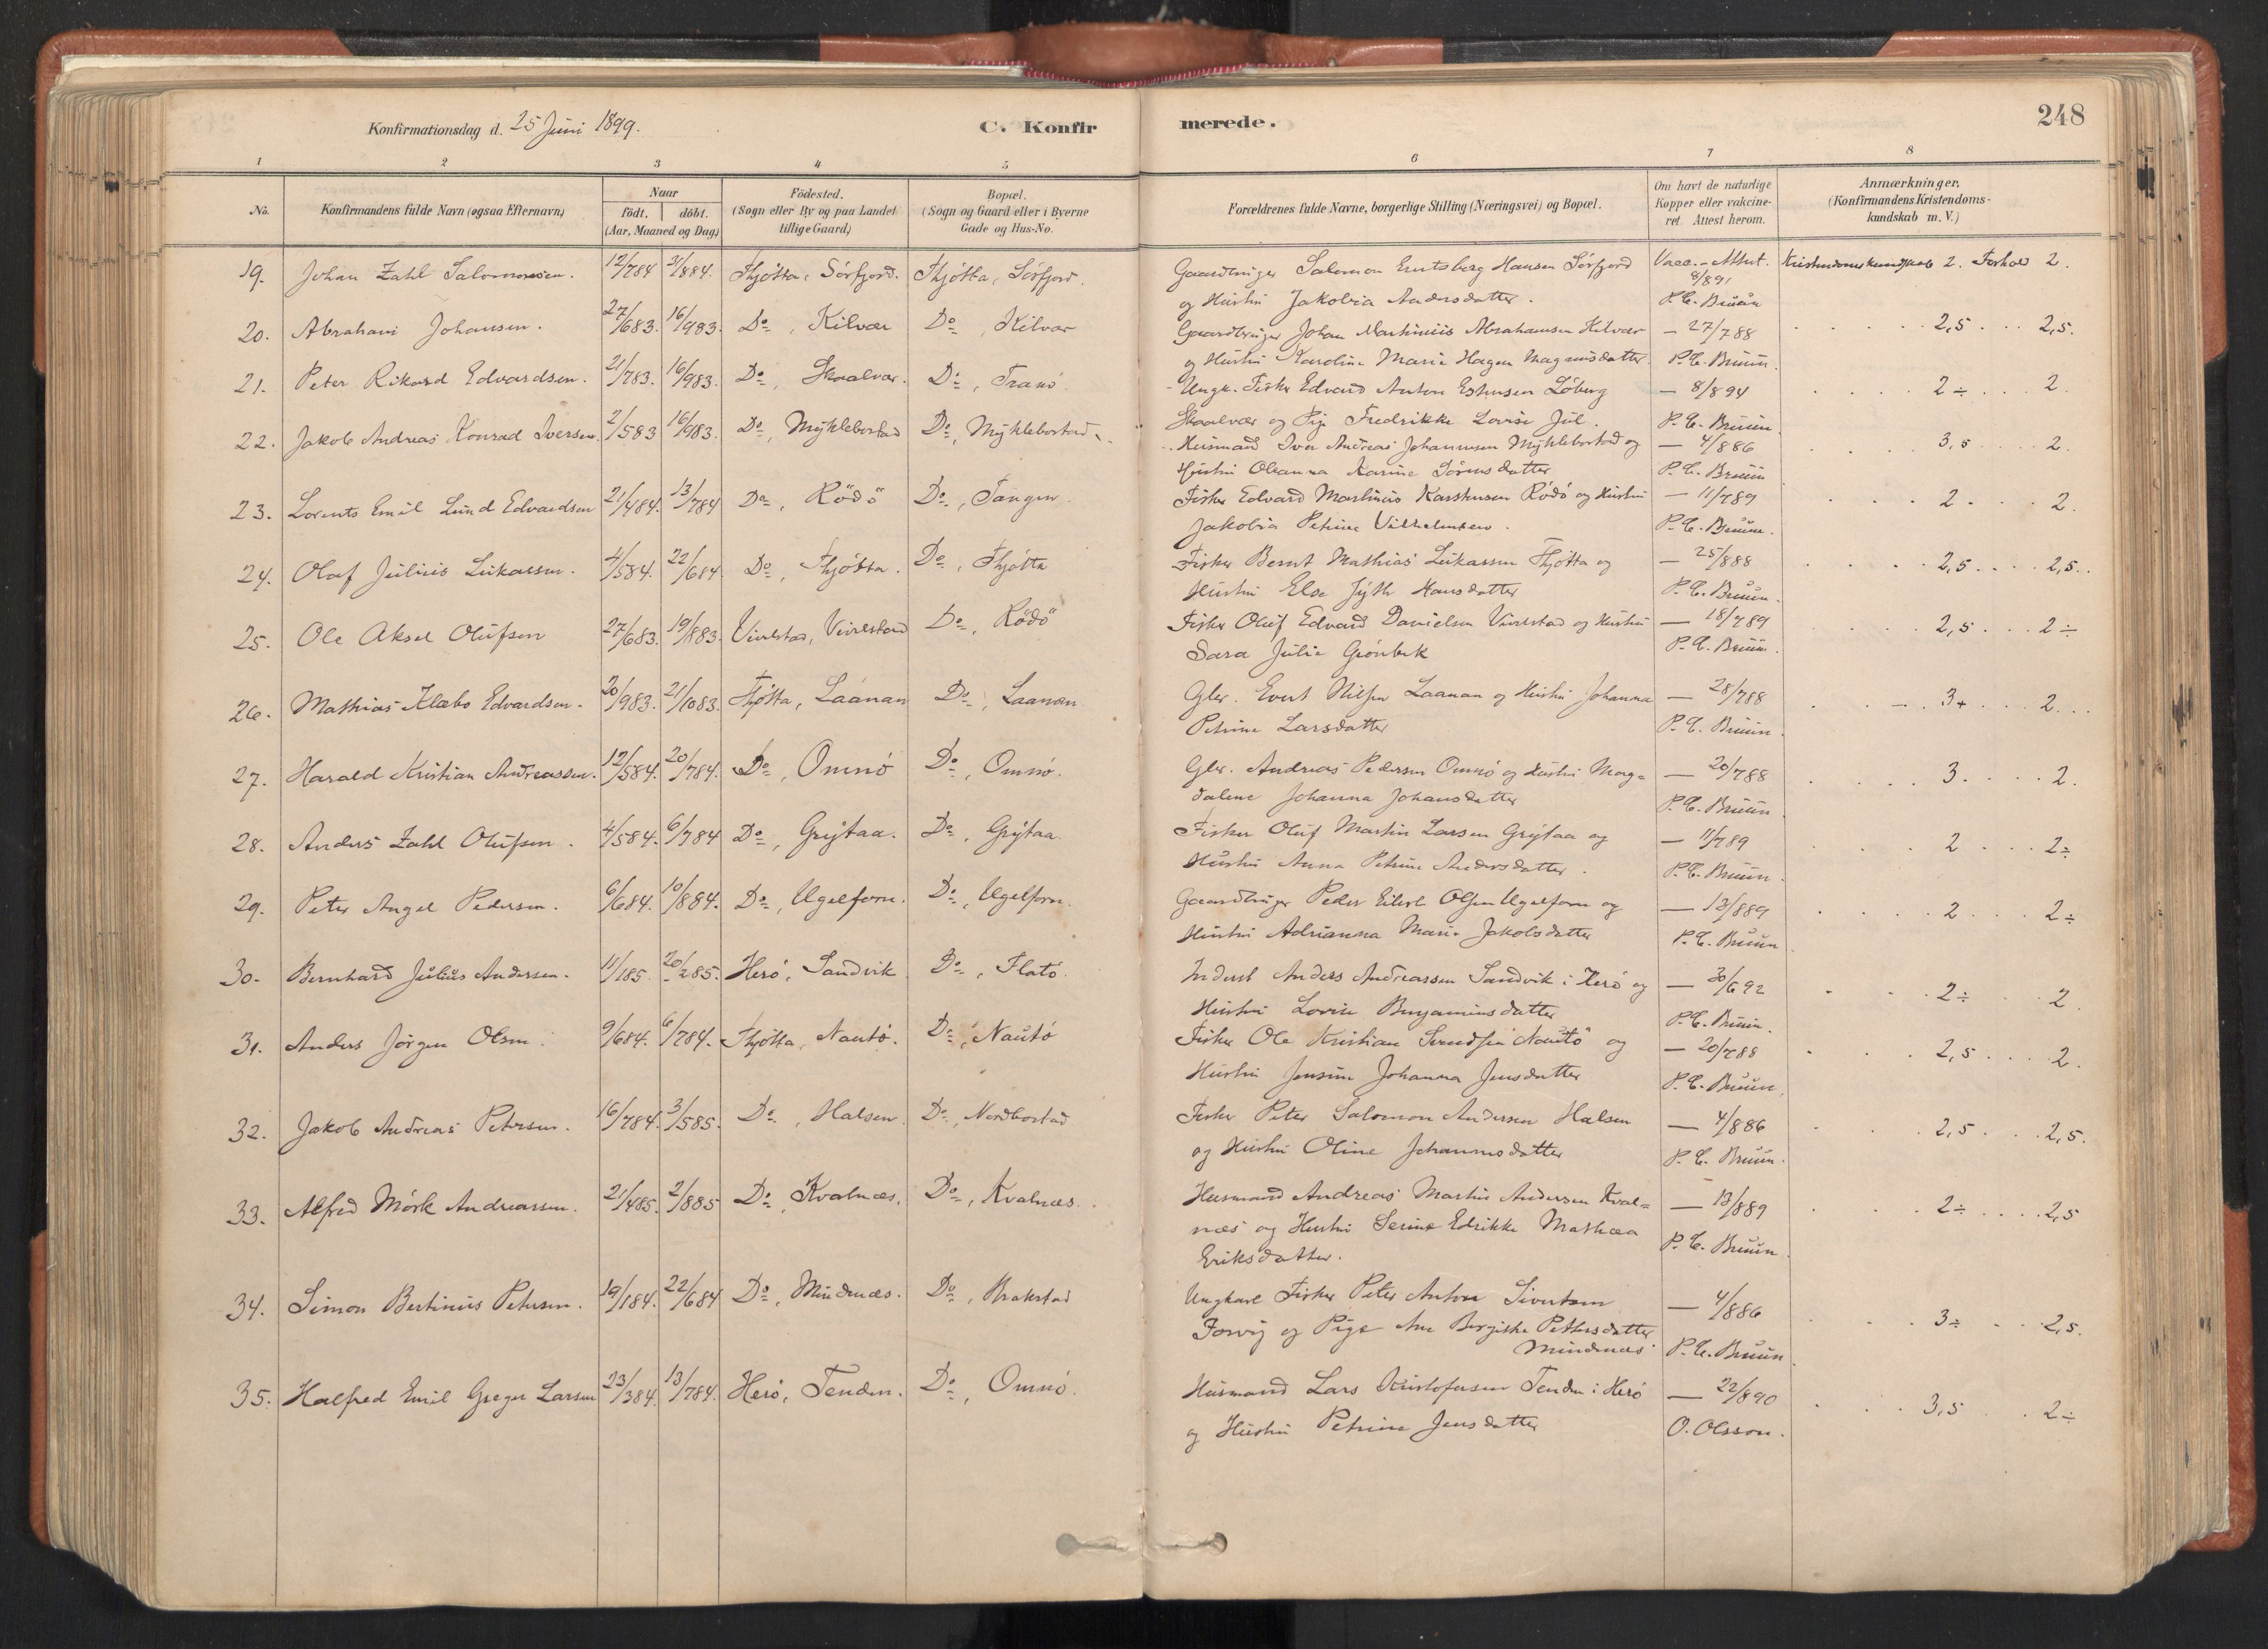 Konfirmationsdag d. 25 Juni 1899. C. Konfir merede. 248
1 2 3 4 5 6 7 8
No. Konfirmandens fulde Navn (ogsaa Efternavn) Naar födt. döbt. (Aar, Maaned og Dag) Födested. (Sogn eller By og paa Landet tillige Gaard) Bopæl. (Sogn og Gaard eller i Byerne Gade og Hus-No. Forældrenes fulde Navne, borgerlige Stilling (Næringsvei) og Bopæl. Om havt de naturlige Kopper eller vakcineret. Attest herom. Anmærkninger. (Konfirmandens Kristendomskundskab m. V.)
19. Johan Zahl Salomonsen. 12/784 31/884. Thjötta, Sörfjord. Thjötta, Sörfjord. Gaardbruger Salomon Hansen Sörfjord Vacc.-Attest. Kristendomskundskab 2. Forhold 2.
og Hustru Jakobia Andersdatter. 8/891 P. C. Bruun
20. Abraham Johansen. 27/683. 16/983. Do, Kilvær Do, Kilvær Gaardbruger Johan Martinius Abrahamsen Kilvær — 27/788 2,5 2,5.
og Hustru Karoline Marie Hagen Magnusdatter P. C. Bruun.
21. Peter Rikard Edvardsen. 21/783. 16/983. Do, Skaalvær. Do, Tranö. Ungk. Fisker Edvard Anton Esbensen Löberg — 8/894 2÷ 2.
Skaalvær og Pige Fredrikke Lovise Jul. P. C. Bruun
22. Jakob Andreas Konrad Iversen. 2/583 16/983. Do, Mÿklebostad Do, Mÿklebostad Husmand Iver Andreas Johannesen Mÿklebostad og — 4/886 3,5 2.
Hustru Oleanna Karine Sörensdatter P. C. Bruun
23. Lorents Emil Lund Edvardsen 21/484. 13/784 Do, Rödö Do, Tangen Fisker Edvard Martinius Karstensen Rödö og Hustru — 11/789 2 2.
Jakobia Petrine Vilhelmsen. P. C. Bruun.
24. Olaf Julius Lukassen. 4/584. 22/684 Do, Thjötta. Do, Thjötta Fisker Bernt Mathias Lukassen Thjötta og — 25/888 2,5 2,5.
Hustru Else Jÿth Hansdatter P. C. Bruun.
25. Ole Aksel Olufsen 27/683. 19/883. Vivelstad, Vivelstad Do, Rödö Fisker Oluf Edvard Danielsen Vivelstad og Hustru — 18/789 2,5 2÷
Sara Julie Grönbek P. C. Bruun.
26. Mathias Klæbo Edvardsen. 20/983. 21/1083. Thjötta, Laanan Do, Laanan Gbr. Evert Nilsen Laanan og Hustru Johanna — 28/788 3+ 2
Petrine Larsdatter P. C. Bruun.
27. Harald Kristian Andreassen. 12/584. 20/784. Do, Omnö Do, Omnö. Gbr. Andreas Pedersen Omnö og Hustru Mag= — 20/788 3. 2.
dalene Johanna Johansdatter P. C. Bruun
28. Anders Zahl Olufsen. 4/584. 6/784 Do, Grÿtaa. Do, Grÿtaa. Fisker Oluf Martin Larsen Grÿtaa og — 11/789 2 2÷
Hustru Anna Petrine Andersdatter. P. C. Bruun.
29. Peter Angel Pedersen. 6/684. 10/884. Do, Ugelforn. Do, Ugelforn. Gaardbruger Peder Eilert Olsen Ugelforn og — 13/889 2 2÷
Hustru Adrianna Marie Jakobsdatter P. C. Bruun
30. Bernhard Julius Andersen. 11/185. 20/285. Herö, Sandvik Do, Flatö. Inderst Anders Andreassen Sandvik i Herö og — 30/692 2÷ 2.
Hustru Lovise Benjaminsdatter P. C. Bruun.
31. Anders Jörgen Olsen. 9/684. 6/784. Thjötta, Nautö. Do, Nautö Fisker Ole Kristian Svendsen Nautö og — 20/788 2,5 2.
Hustru Jensine Johanna Jensdatter P. C. Bruun.
32. Jakob Andreas Petersen. 16/784. 3/585. Do, Halsen Do, Nordbostad Fisker Peter Salomon Andersen Halsen — 4/886 2,5 2,5.
og Hustru Oline Johannesdatter P. C. Bruun.
33. Alfred Mörk Andreassen. 21/485. 2/885 Do, Kvalnæs. Do, Kvalnæs. Husmand Andreas Martin Andersen Kval= — 13/889 2÷ 2,5
næs og Hustru Serine Edrikke Mathea P. C. Bruun
Eriksdatter.
34. Simon Bertinius Petersen. 19/184. 22/684 Do, Mindnæs. Do, Brakstad Ungkarl Fisker Peter Anton Sivertsen — 4/886 3÷ 2,5.
Forvig og Pige Ane Bergithe Pettersdatter
Mindnæs P. C. Bruun
35. Halfred Emil Greger Larsen 23/384. 13/784. Herö, Tenden. Do, Omnö. Husmand Lars Kristofersen Tenden i Herö — 22/890 3,5 2÷
og Hustru Petrine Jensdatter O. Olsson.